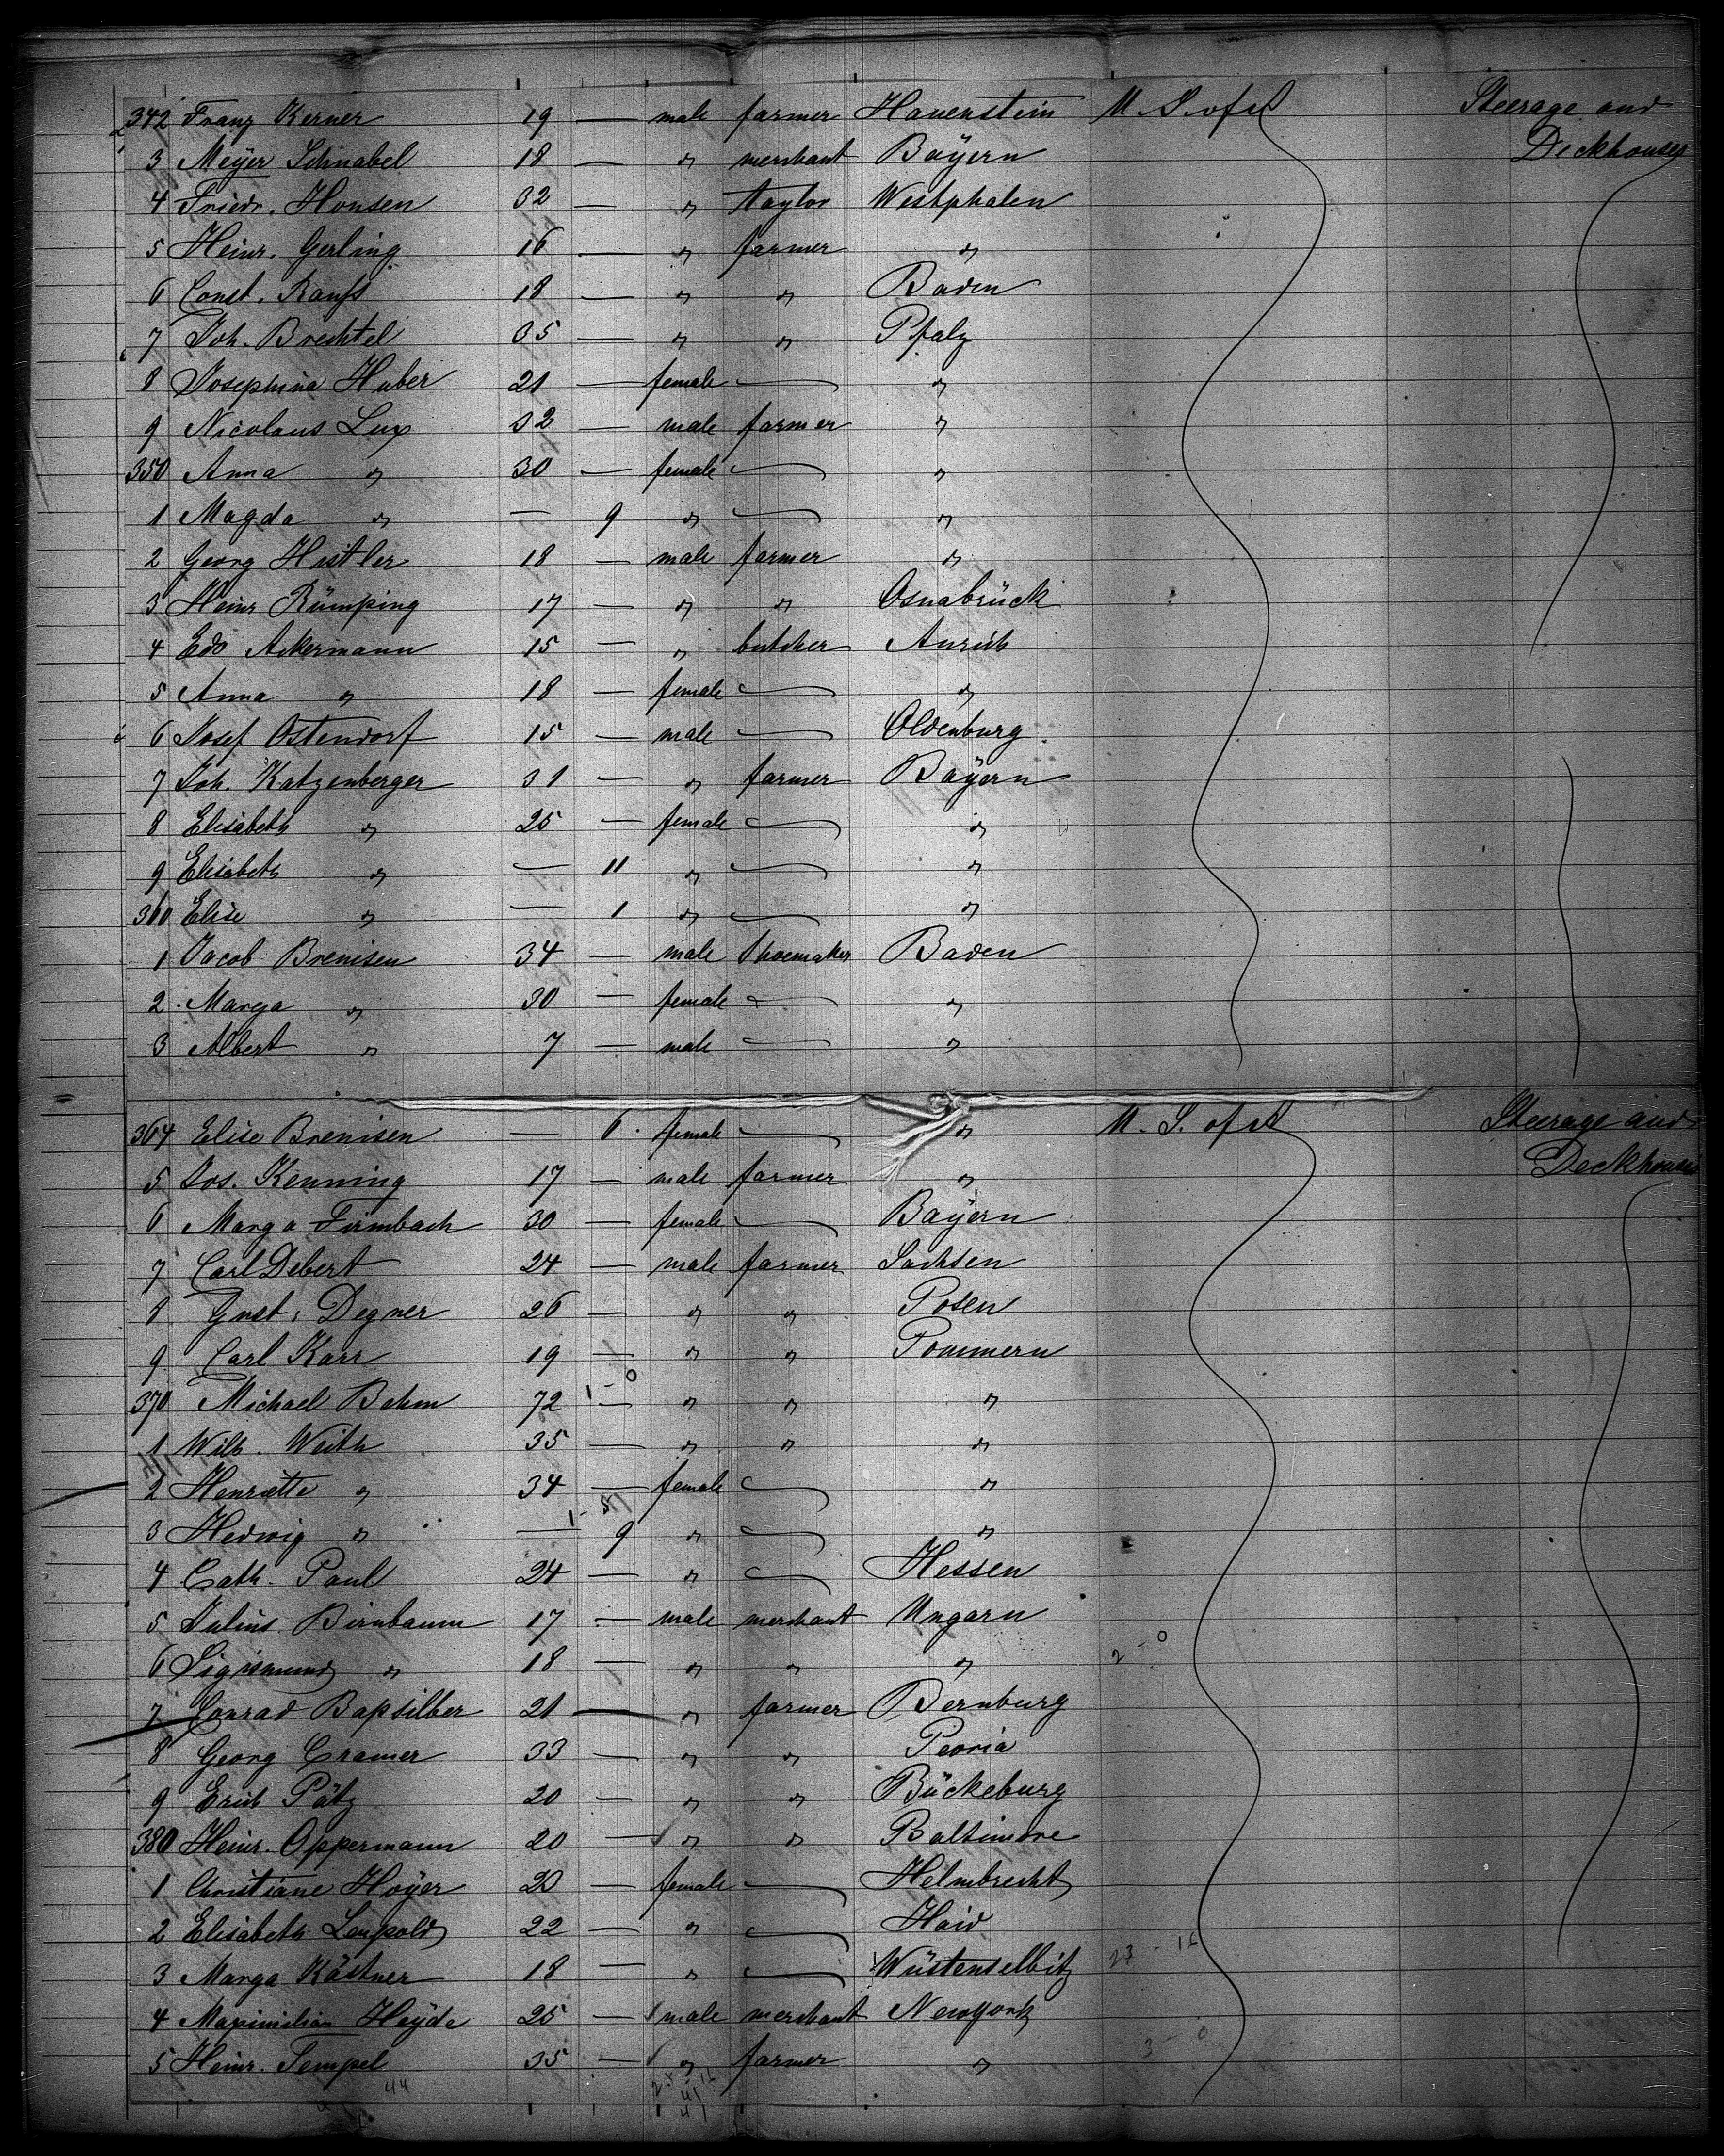 342 Franz Kerner 19 — male farmer Hauenstein U. S. of A Steerage and
Deckhouses
3 Meÿer Schnabel 18 — " merchant Baÿern
4 Friedr. Honsen 32 — " taylor Westphalen
5 Heinr. Gerling 16 — " farmer "
6 Const. Raufs 18 — " " Baden
7 Joh. Brechtel 35 — " " Pfalz
8 Josephina Huber 21 — female — "
9 Nicolaus Lux 32 — male farmer "
350 Anna " 30 — female — "
1 Magda " — 9 " — "
2 Georg Histler 18 — male farmer "
3 Heinr Rümping 17 — " " Osnabrück
4 Edo Ackermann 15 — " butcher Aurich
5 Anna " 18 — female — "
6 Josef Ostendorf 15 — male — Oldenburg
7 Joh. Katzenberger 31 — " farmer Baÿern
8 Elisabeth " 25 — female — "
9 Elisabeth " — 11 " — "
360 Elise " — 1 " — "
1 Jacob Brenisen 34 — male Shoemaker Baden
2 Marga " 30 — female — "
3 Albert " 7 — male — "
364 Elise Brenisen — 6 female — " U. S. of A Steerage and
Deckhouses
5 Jos. Kenning 17 — male farmer "
6 Marga Firmbach 30 — female — Baÿern
7 Carl Debert 24 — male farmer Sachsen
8 Gust. Degner 26 — " " Posen
9 Carl Karr 19 — " " Pommern
370 Michael Bohm 72 — " " "
1 Wilh. Weith 35 — " " "
2 Henriette " 34 — female — "
3 Hedwig " — 9 " — "
4 Cath. Paul 24 — " — Hessen
5 Julius Birnbaum 17 — male merchant Ungarn
6 Sigismund " 18 — " " " 2 - 0
7 Conrad Bapsilber 21 — " farmer Bernburg
8 Georg Cramer 33 — " " Peoria
9 Erich Pätz 20 — " " Bückeburg
380 Heinr. Oppermann 20 — " " Baltimore
1 Christiane Hoÿer 20 — female — Helmbrecht
2 Elisabeth Leupold 22 — " — Haid
3 Marga Kästner 18 — " — Wüstenselbitz
4 Maximilian Heÿde 25 — male merchant Newyork
5 Heinr. Tempel 35 — " farmer " 3 - 0
44
41